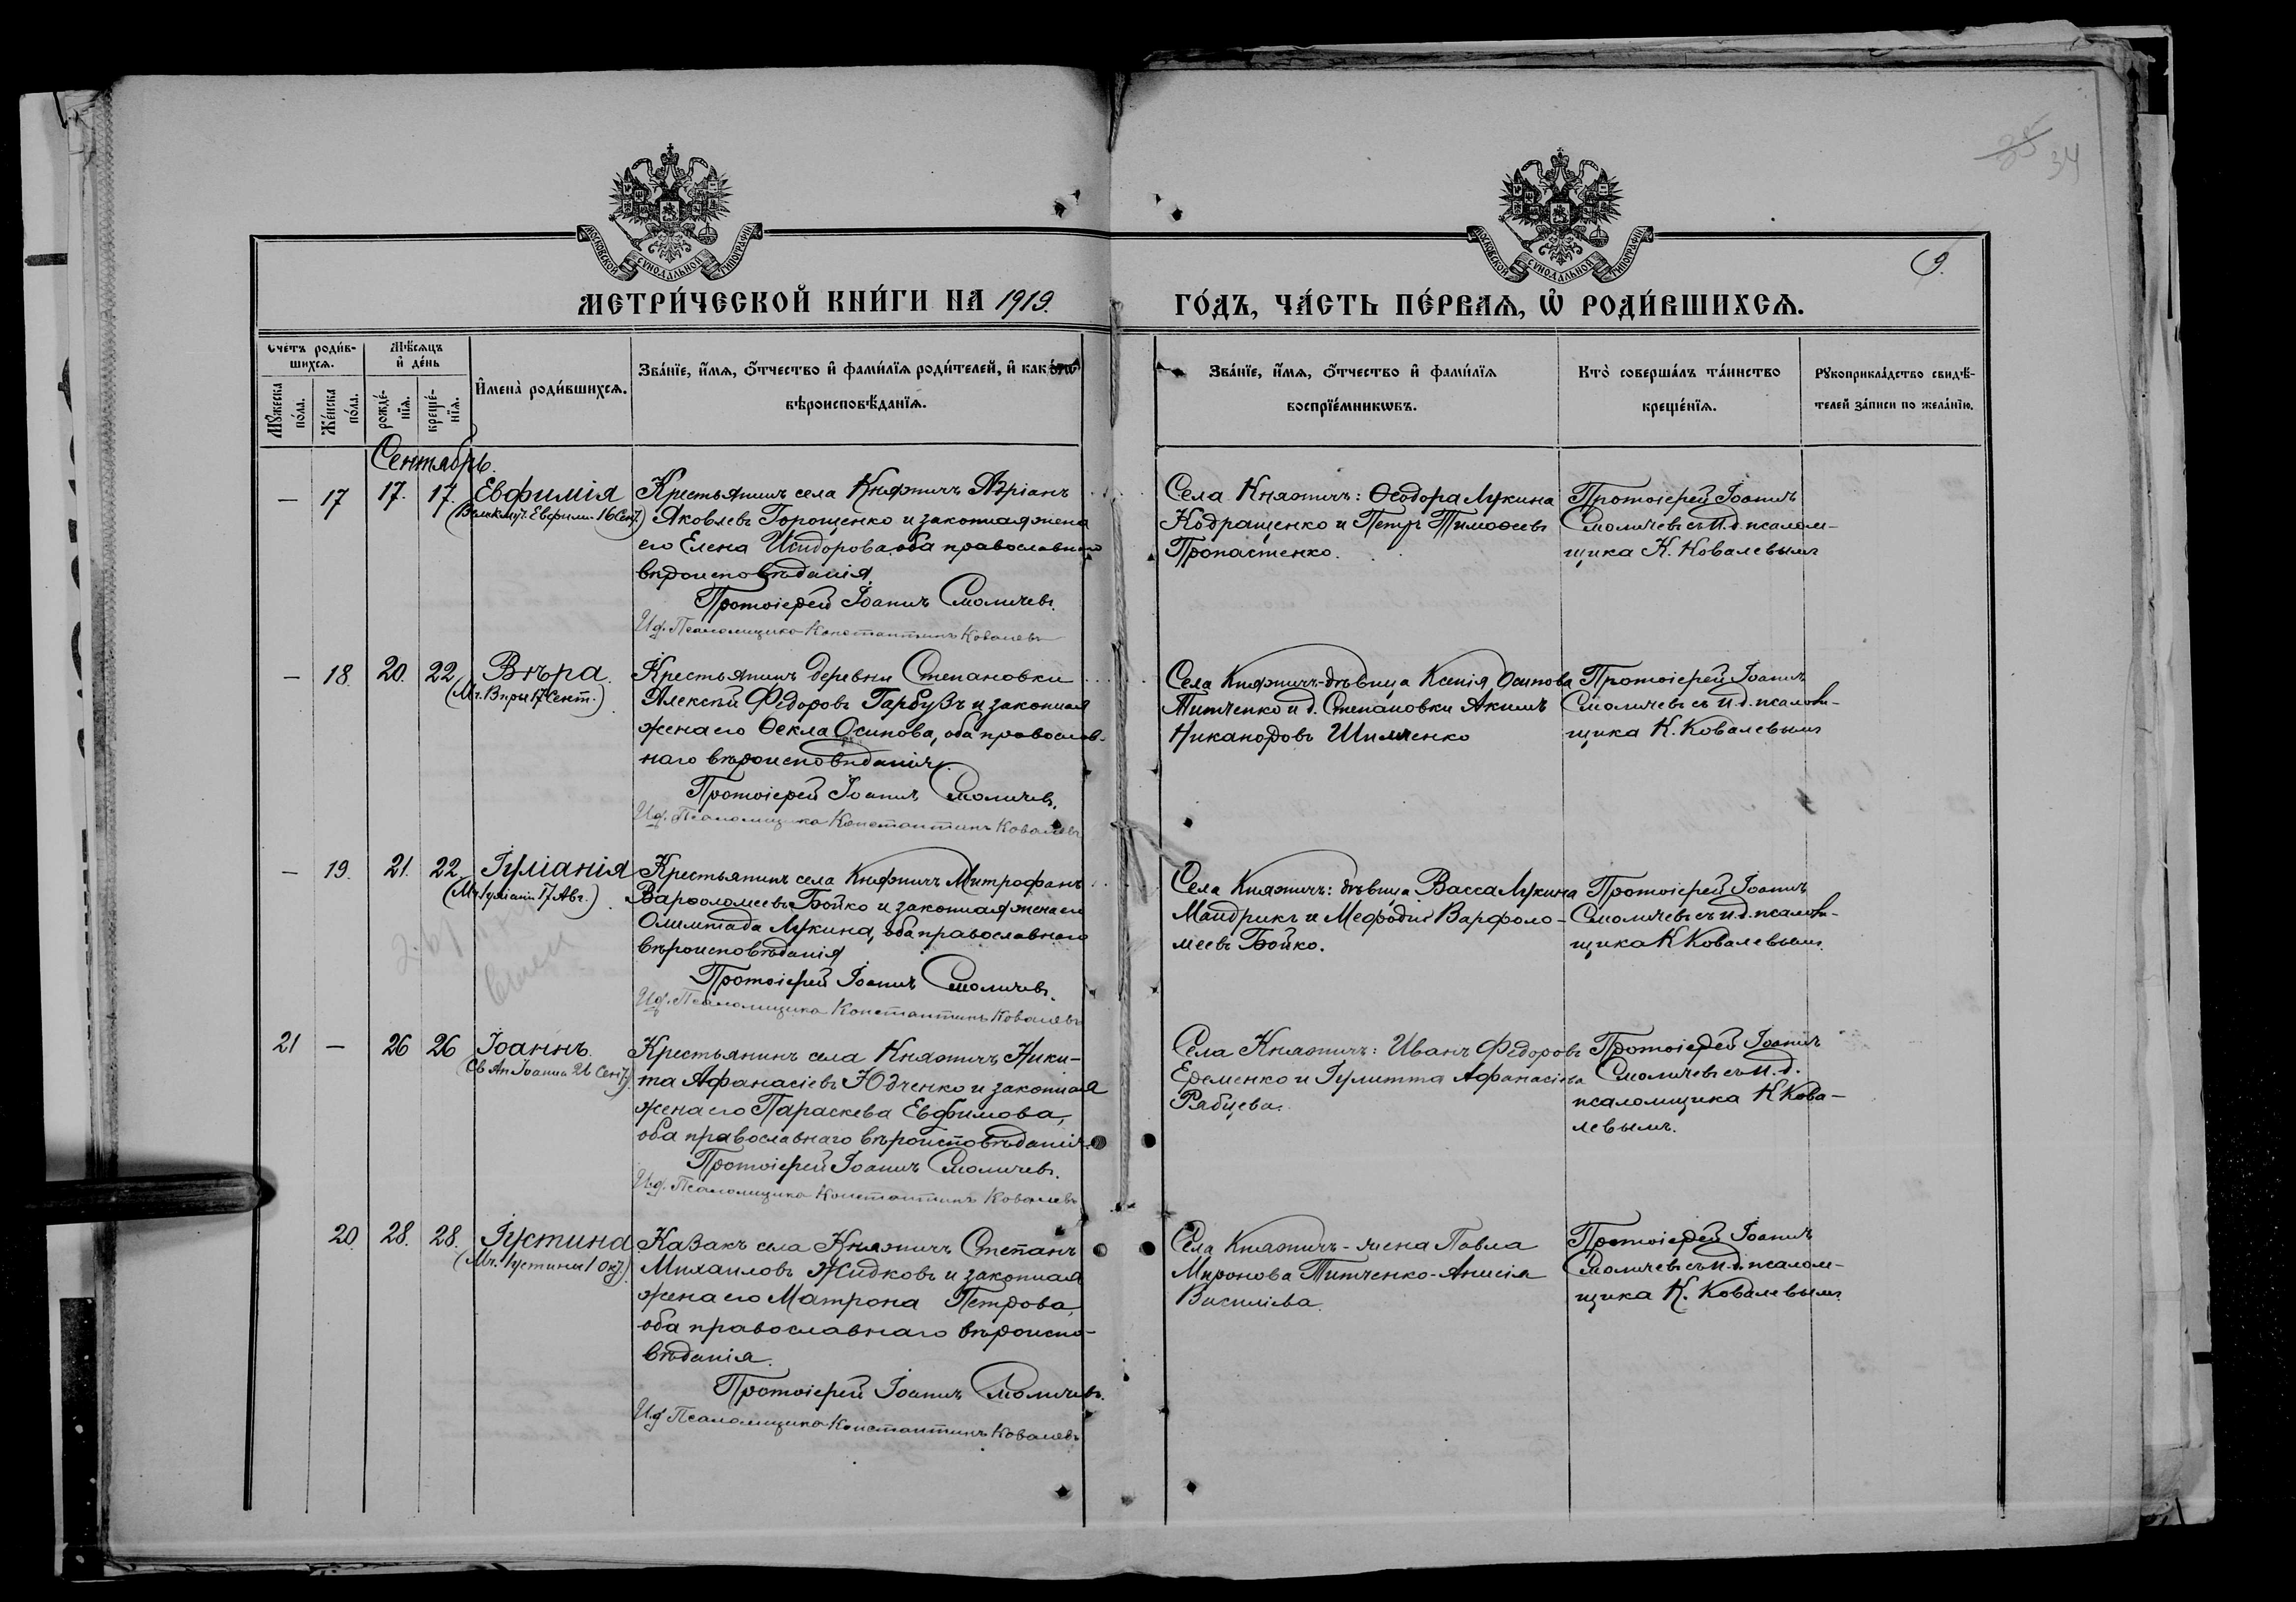 34
9.
МОСКОВСКОЙ СУНОДАЛЬНОЙ ТИПОГРАФІИ
МОСКОВСКОЙ СУНОДАЛЬНОЙ ТИПОГРАФІИ
МЕТРИ́ЧЕСКОЙ КНИ́ГИ НА 1919. ГО́ДЪ, ЧА́СТЬ ПЕ́РВАЯ, Ѡ РОДИ́ВШИХСЯ.
Счетъ роди́вшихся.
Мужеска по́ла.
Же́нска по́ла.
Мѣ́сяцъ и де́нь
рожде́нїя.
креще́нїя.
И҆мена̀ роди́вшихся.
Зва́нїе, и҆́мя, о҆́тчество и҆ фами́лїя роди́телей, и҆ как
вѣроисповѣ́данїя.
Зва́нїе, и҆́мя, о҆́тчество и҆ фами́лїя
воспрїе́мникѡвъ.
Кто̀ соверша́лъ та́инство
креще́нїя.
Рукоприкла́дство свидѣ́-
телей за́писи по жела́нїю.
Сентябрь.
— 17 17. 17. Евфимія
(Великмуч. Евфими. 16 Сент.)
Крестьянинъ села Княжичъ Адріанъ
Яковлевъ Горощенко и законная жена
его Елена Исидорова, оба православнаго
вѣроисповѣданія.
Протоіерей Іоаннъ Смоличевъ.
И.д. Псаломщика Константинъ Ковалевъ
Села Княжичъ: Ѳеодора Лукина
Кодращенко и Петръ Тимоѳеевъ
Пропастенко.
Протоіерей Іоаннъ
Смоличевъ съ и.д. псалом-
щика К. Ковалевымъ
— 18. 20. 22 Вѣра.
(Мч. Вѣры 17 Сент.)
Крестьянинъ деревни Степановки
Алексѣй Ѳедоровъ Гарбузъ и законная
жена его Ѳекла Осипова, оба православ-
наго вѣроисповѣданія.
Протоіерей Іоаннъ Смоличевъ.
И.д. Псаломщика Константинъ Ковалевъ
Села Княжичъ-дѣвица Ксенія Осипова
Титченко и д. Степановки Акимъ
Никаноровъ Шимченко
Протоіерей Іоаннъ
Смоличевъ съ и.д. псалом-
щика К. Ковалевымъ
— 19. 21. 22. Іуліанія
(Мч. Іуліаніи 17 Авг.)
Крестьянинъ села Княжичъ Митрофанъ
Варѳоломеевъ Бойко и законная жена его
Олимпіада Лукина, оба православнаго
вѣроисповѣданія
Протоіерей Іоаннъ Смоличевъ.
И.д. Псаломщика Константинъ Ковалевъ
Села Княжичъ: дѣвица Васса Лукина
Мандрикъ и Меѳодій Варфоло-
меевъ Бойко.
Протоіерей Іоаннъ
Смоличевъ съ и.д. псалом-
щика К Ковалевымъ.
21 — 26 26 Іоаннъ.
(Св Ап Іоанна 26 Сент.)
Крестьянинъ села Княжичъ, Ники-
та Афанасіевъ Юдченко и законная
жена его Параскева Евфимова,
оба православнаго вѣроисповѣданія.
Протоіерей Іоаннъ Смоличевъ.
И.д. Псаломщика Константинъ Ковалевъ
Села Княжичъ: Иванъ Федоровъ
Еременко и Іулитта Афанасіева
Рябцева.
Протоіерей Іоаннъ
Смоличевъ съ и.д.
псаломщика К Кова-
левымъ.
20 28. 28. Іустина
(Мч. Іустины 1 Окт.)
Казакъ села Княжичъ Степанъ
Михаиловъ Жидковъ и законная
жена его Матрона Петрова,
оба православнаго вѣроиспо-
вѣданія.
Протоіерей Іоаннъ Смоличевъ.
И.д Псаломщика Константинъ Ковалевъ
Села Княжичъ - жена Павла
Миронова Титченко-Анисія
Василіева.
Протоіерей Іоаннъ
Смоличевъ съ и.д. псалом-
щика К. Ковалевымъ.